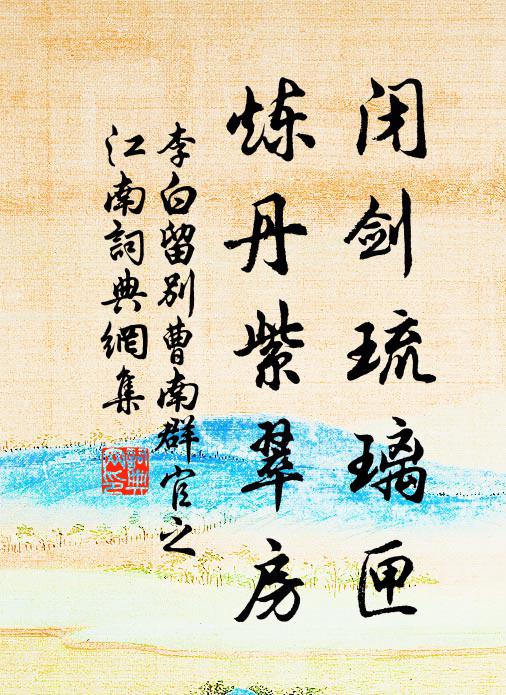 闭剑琉璃匣
炼丹紫翠房
李白留别曹南群官之
江南詞典網集